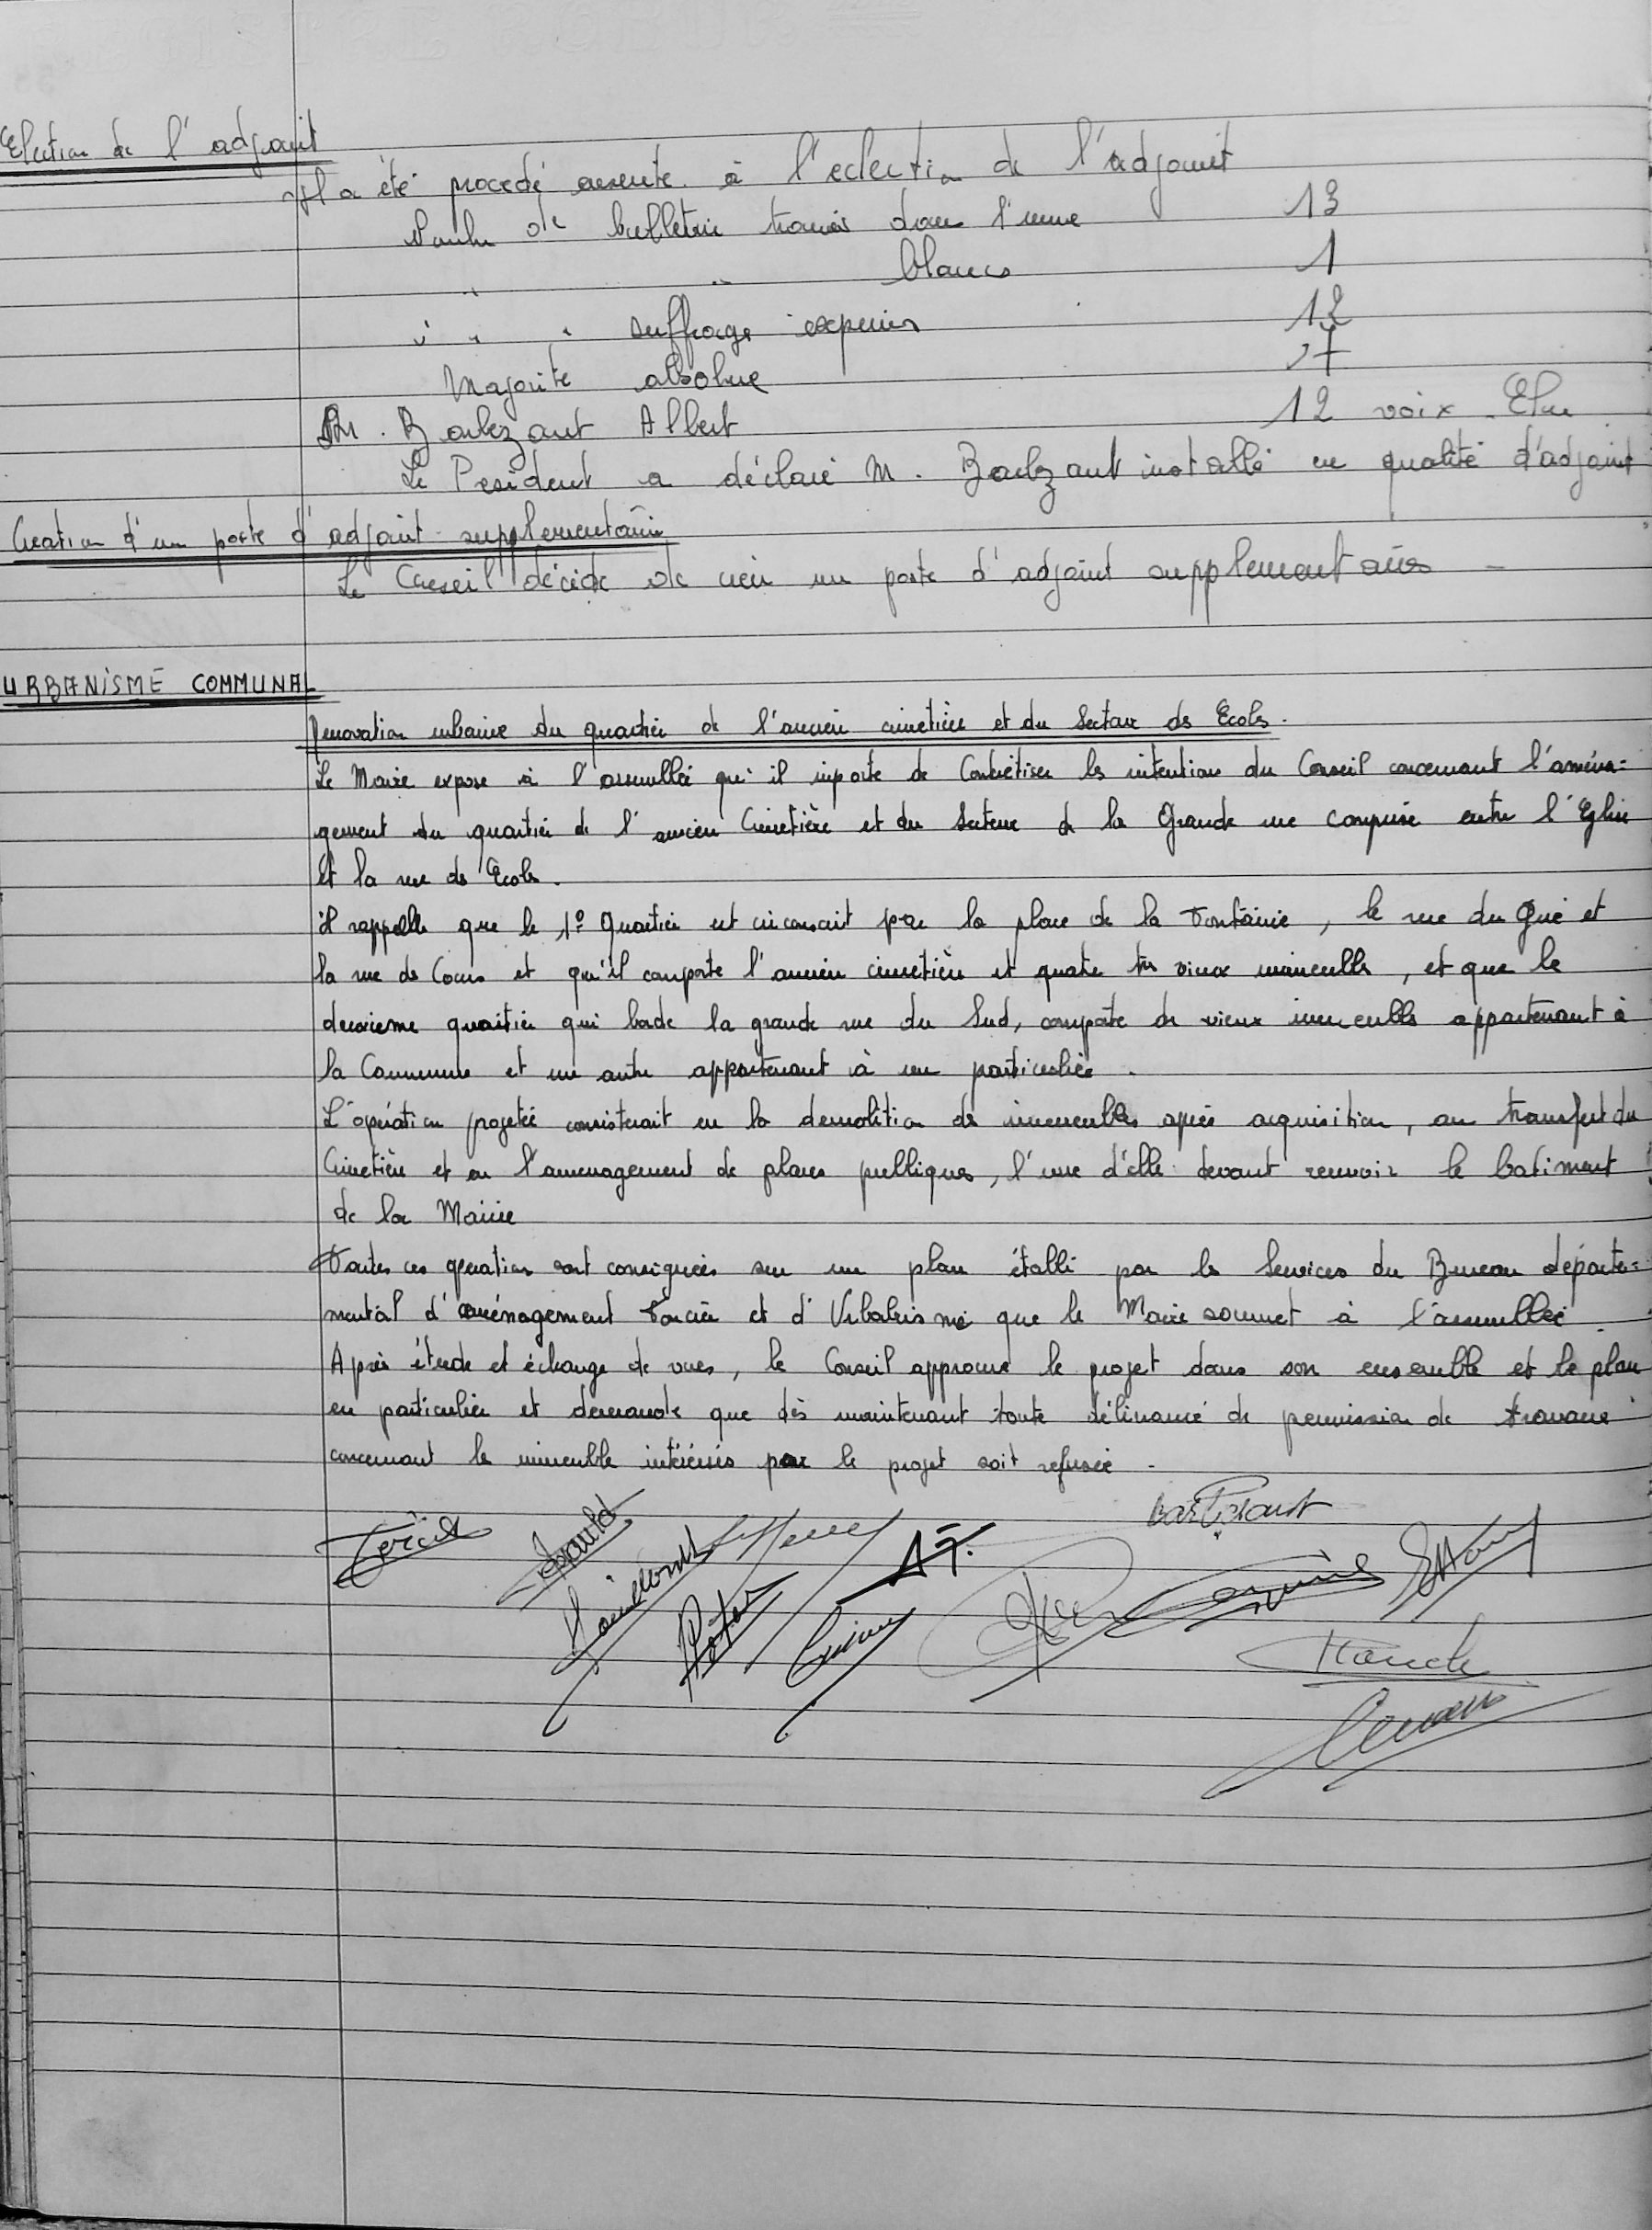 Election de l'adjoint
Il a été procédé ensuite à l'eclection de l'adjoint
Nombre de bulletin trouvés dans l'urne 13
" " blancs 1
" " " suffrage exprimés 12
Majorité absolue 7
M. Albert 12 voix Elu
Le President a déclaré M. installé en qualité d'adjoint
Creation d'un poste d'adjoint supplementaire
Le Conseil décide de créer un poste d'adjoint supplementaire -
URBANISME COMMUNAL
Renovation urbaine du quartier de l'ancien cimetière et du Secteur des Ecoles.
Le Maire expose à l'assemblée qu'il importe de Concrétiser les intentions du Conseil concernant l'aména=
gement du quartier de l'ancien Cimetière et du Secteur de la Grande rue comprise entre l'Eglise
et la rue des Ecoles.
il rappelle que le 1° Quartier est circonscrit par la place de la Fontaine, la rue du Gué et
la rue de Cours et qu'il comporte l'ancien cimetière et quatre très vieux immeubles, et que le
deuxieme quartier qui borde la grande rue du Sud, comporte de vieux immeubles appartenant à
la Commune et un autre appartenant à un particulier.
L'opération projetée consisterait en la demolition des immeubles après acquisition, au transfert du
Cimetière et en l'amenagement de places publiques, l'une d'elle devant recevoir le batiment
de la Mairie
Toutes ces operation sont consignées sur un plan établi par les Services du Bureau départe=
mental d'aménagement Foncier et d'Urbanisme que le Maire soumet à l'assemblée.
Après étude et échange de vues, le Conseil approuve le projet dans son ensemble et le plan
en particulier et demande que dès maintenant toute délivrance de permission de travaux
concernant les immeuble intéressés par le projet soit refusée -